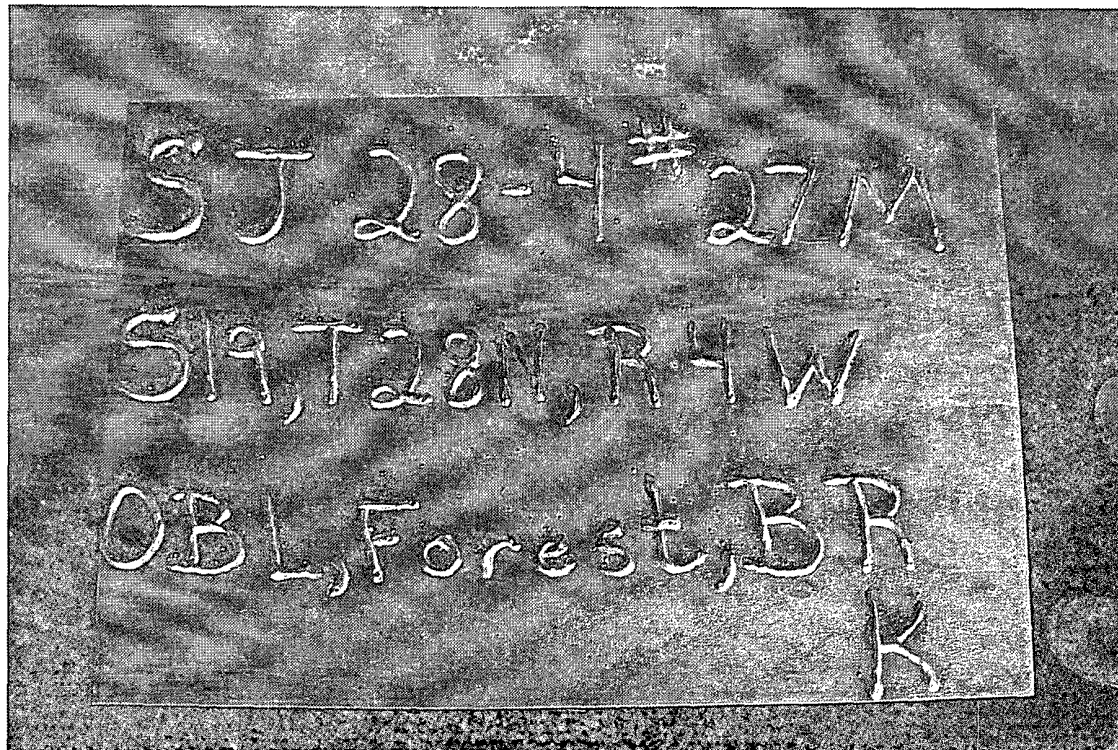 SJ 28-4 #27M
S19, T28N, R4W
OBL, Forest, BR
K